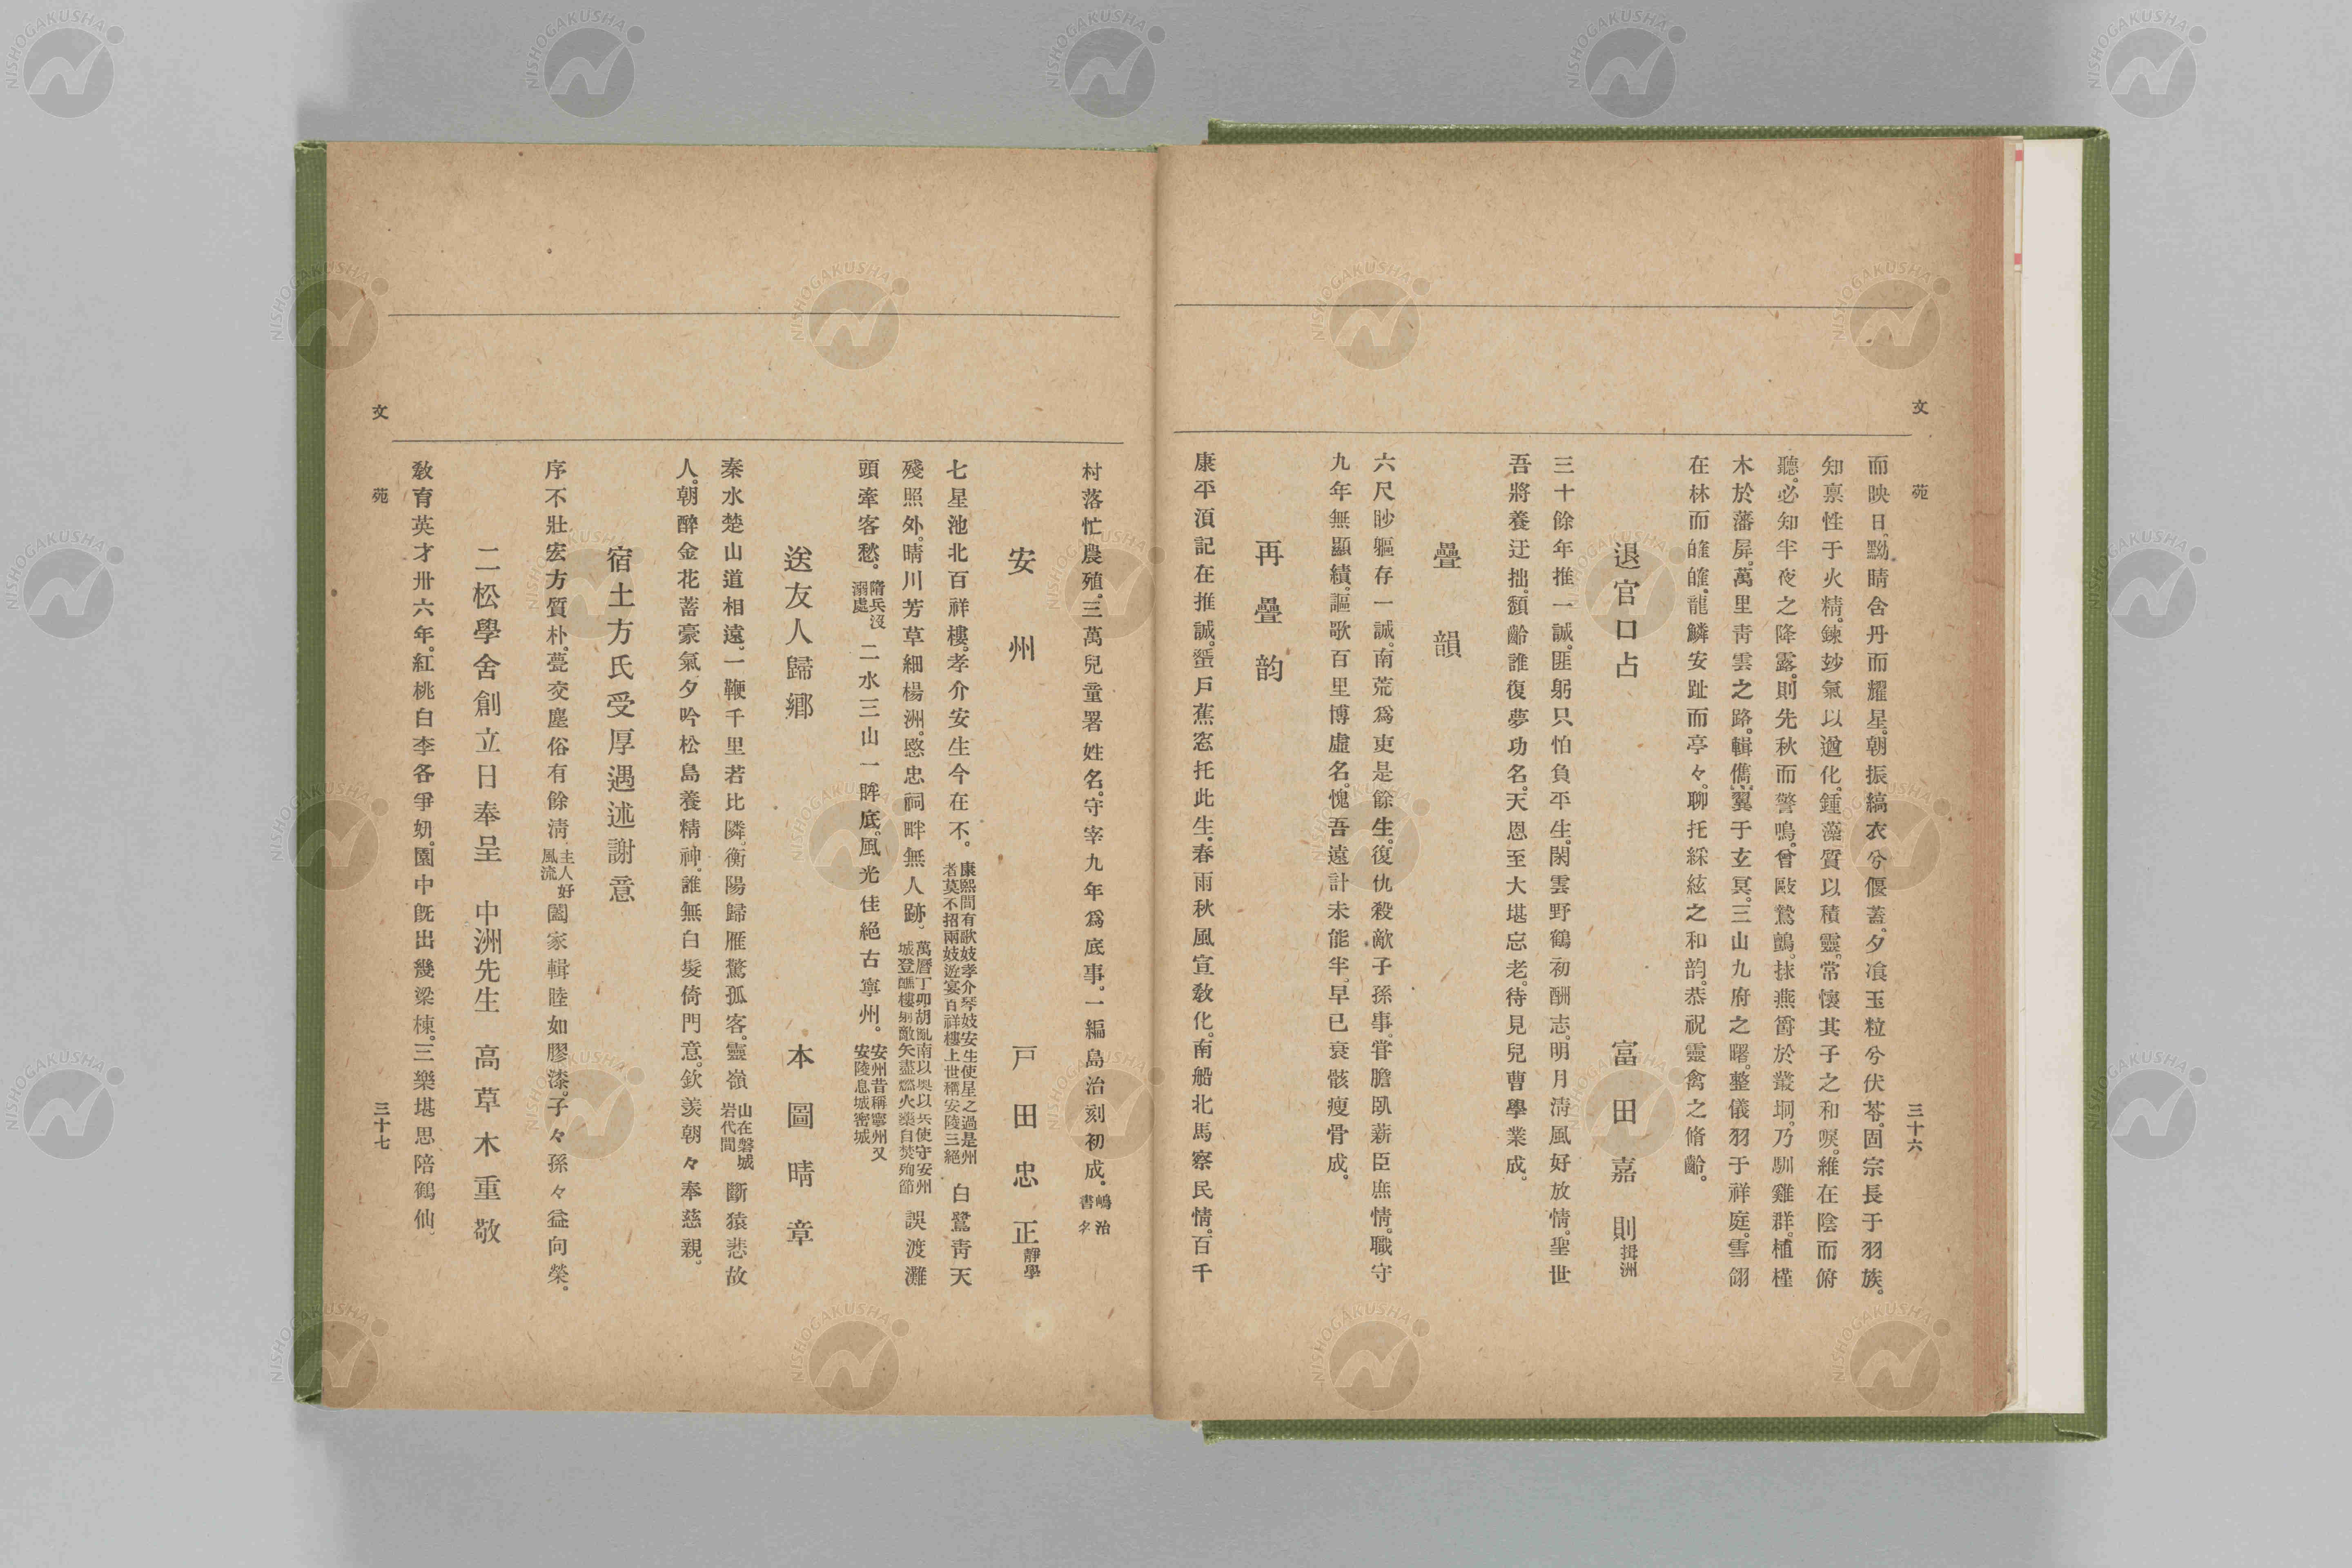 文苑
三十六
而映日。黝睛含丹而耀星。朝振縞衣兮偃蓋。夕飡玉粒兮伏苓。固宗長于羽族。
知禀性于火精。鍊玅氣以遒化。鍾藻質以積靈。常懷其子之和唳。維在陰而俯
聽。必知半夜之降露。則先秋而警鳴。曾敺鷙鸇。抹燕雀於叢坰。乃馴雞群。植槿
木於藩屏。萬里靑雲之路。輯儁翼于玄冥。三山九府之曙。整儀羽于祥庭。雪翎
在林而皠皠。龍鱗安趾而亭々。聊托綵絃之和韵。恭祝靈禽之脩齡。
退官口占 富田嘉則 揖洲
三十餘年推一誠。匪躬只怕負平生。閑雲野鶴初酬志。明月淸風好放情。聖世
吾將養迂拙。頽齡誰復夢功名。天恩至大堪忘老。待見兒曹學業成。
疊韻
六尺眇軀存一誠。南荒爲吏是餘生。復仇殺敵子孫事。甞膽臥薪臣庶情。職守
九年無顯績。謳歌百里博虛名。愧吾遠計未能半。早已衰骸瘦骨成。
再疊韵
康平湏記在推誠。蜑戶蕉窓托此生。春雨秋風宣敎化。南船北馬察民情。百千
村落忙農殖。三萬兒童署姓名。守宰九年爲底事。一編島治刻初成。嶋治書名
安州 戸田忠正 靜學
七星池北百祥樓。孝介安生今在不。康熙間有歌妓孝介琴妓安生使星之過是州者莫不招兩妓遊宴百祥樓上世稱安陵三絕 白鷺靑天
殘照外。晴川芳草細楊洲。愍忠祠畔無人跡。萬曆丁卯胡亂南以興以兵使守安州城登譙樓射敵矢盡燃火藥自焚殉節 誤渡灘
頭牽客愁。隋兵沒溺處 二水三山一眸底。風光佳絕古寧州。安州昔稱寧州又安陵息城密城
送友人歸鄕 本圖晴章
秦水楚山道相遠。一鞭千里若比隣。衡陽歸雁驚孤客。靈嶺 山在磐城岩代間 斷猿悲故
人。朝醉金花蓄豪氣。夕吟松島養精神。誰無白髮倚門意。欽羨朝々奉慈親。
宿土方氏受厚遇述謝意
序不壯宏方質朴。甍交塵俗有餘淸。主人好風流 闔家輯睦如膠漆。子々孫々益向榮。
二松學舍創立日奉呈 中洲先生 高草木重敬
敎育英才卅六年。紅桃白李各爭姸。園中旣出幾梁棟。三樂堪思陪鶴仙。
文苑
三十七
NISHOGAKUSHA